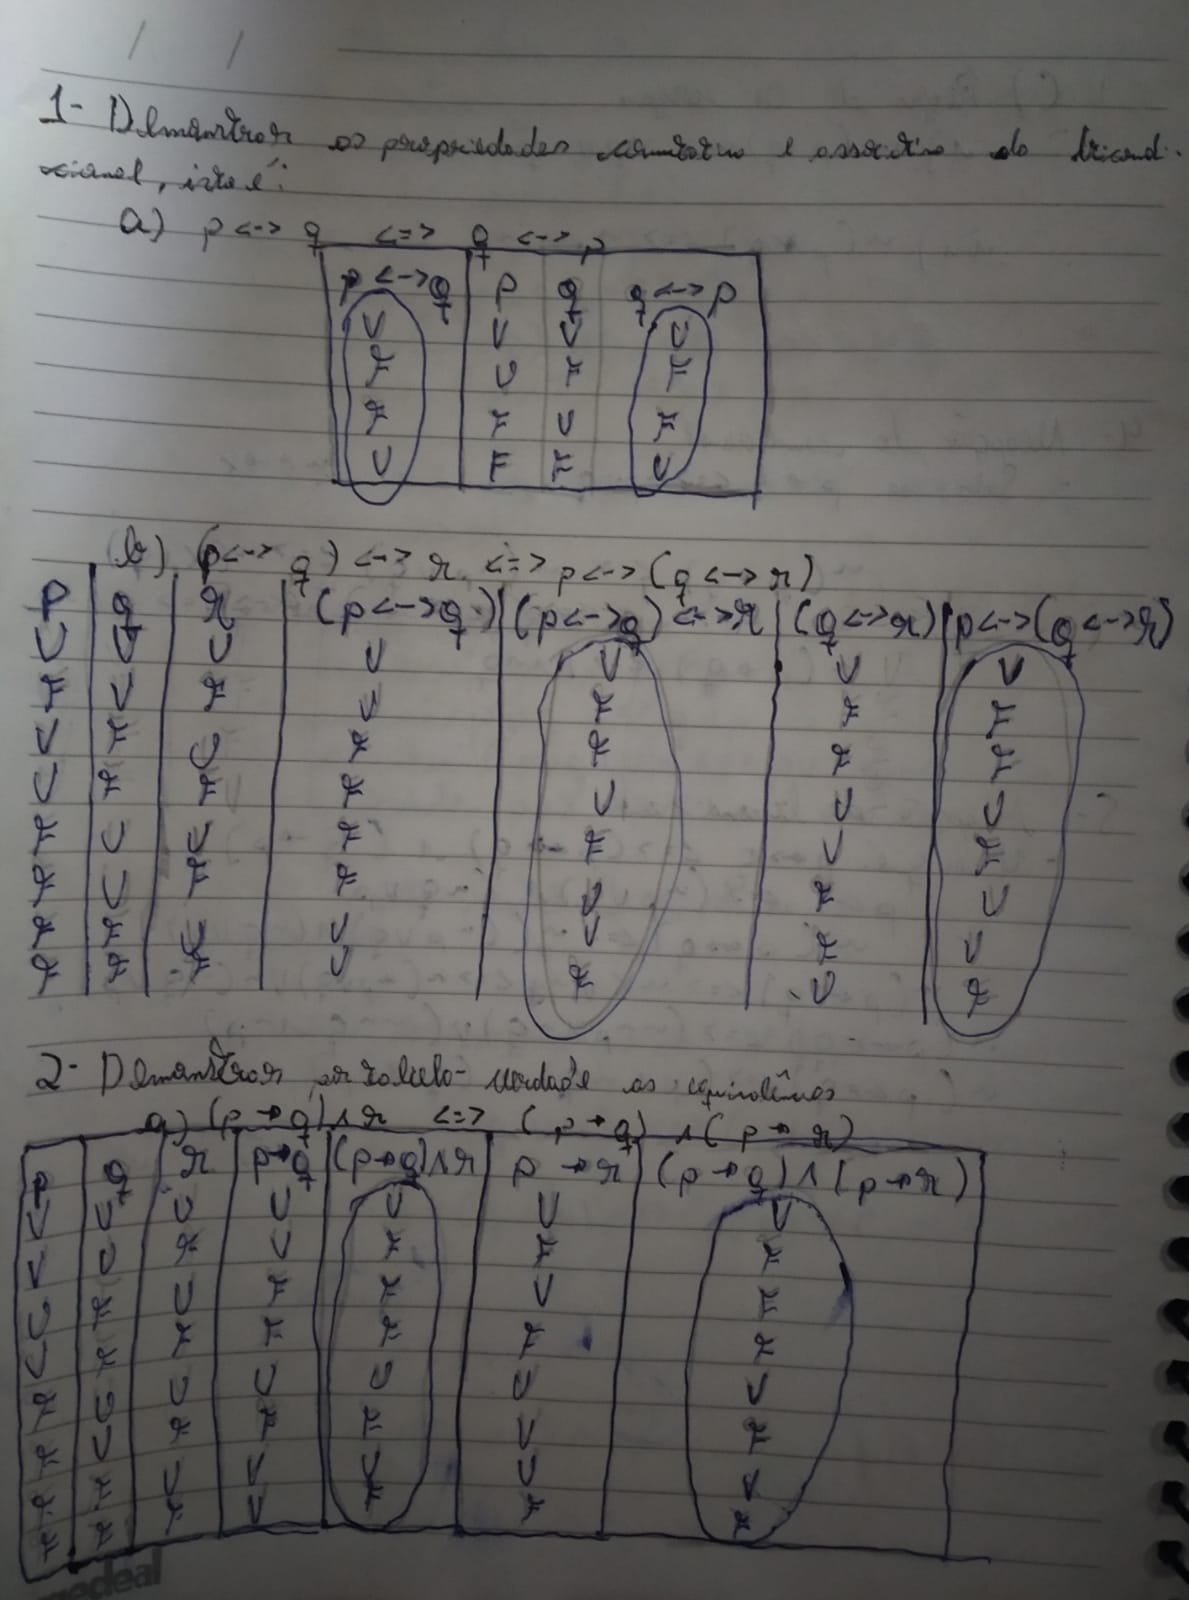 1- Demonstrar as propriedades comutativa e associativa da bicondi-
cional, isto é:
a) p <-> q <=> q <-> p
p <-> q | p | q | q <-> p
V | V | V | V
F | V | F | F
F | F | V | F
V | F | F | V
b) (p <-> q) <-> r <=> p <-> (q <-> r)
p | q | r | (p <-> q) | (p <-> q) <-> r | (q <-> r) | p <-> (q <-> r)
V | V | V | V | V | V | V
F | V | F | V | F | F | F
V | F | V | F | F | F | F
V | F | F | F | V | V | V
F | V | V | F | F | V | F
F | V | F | F | V | F | V
F | F | V | V | V | F | V
F | F | F | V | F | V | F
2- Demonstrar por tabela-verdade as equivalências
a) (p → q) ∧ r <=> (p → q) ∧ (p → r)
p | q | r | p → q | (p → q) ∧ r | p → r | (p → q) ∧ (p → r)
V | V | V | V | V | V | V
V | V | F | V | F | F | F
V | F | V | F | F | V | F
V | F | F | F | F | F | F
F | V | V | V | V | V | V
F | V | F | F | F | V | F
F | F | V | V | V | V | V
F | F | F | V | F | F | F